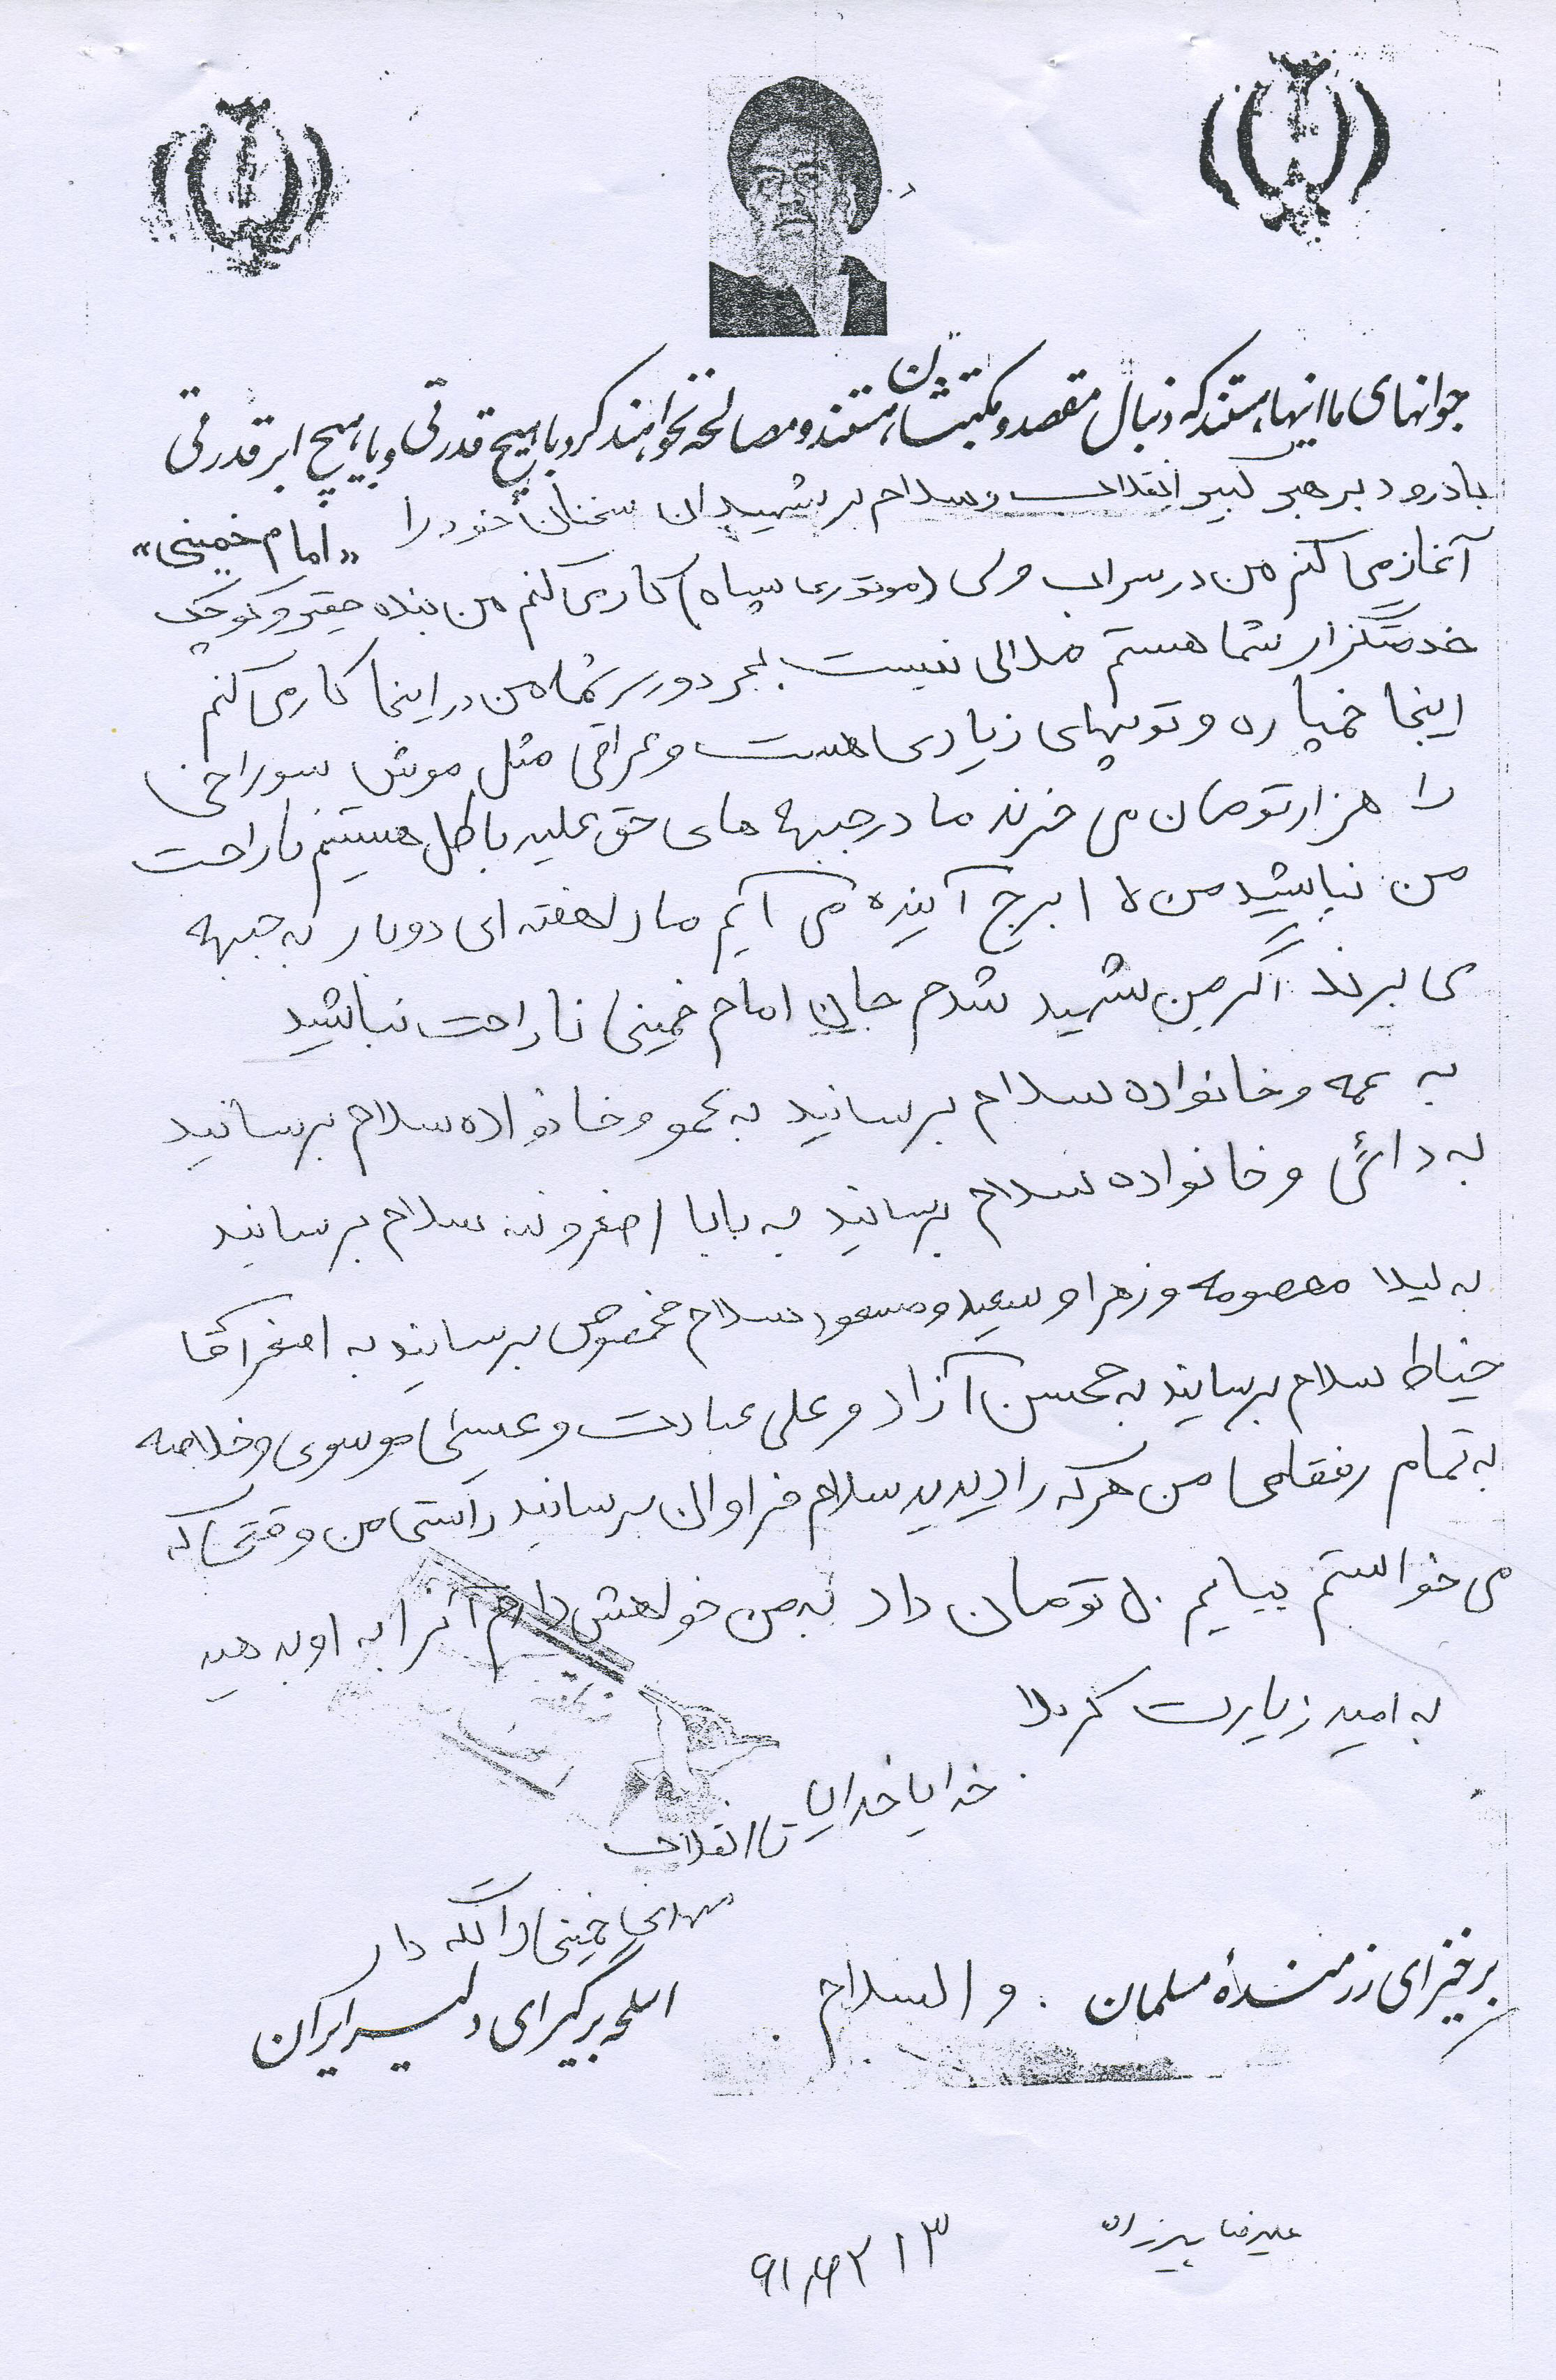 جوانهای ما اینها هستند که دنبال مقصد و مکتبشان هستند و مصالحه نخواهند کرد با هیچ قدرتی و با هیچ ابرقدرتی
«امام خمینی»
با درود بر رهبر کبیر انقلاب و سلام بر شهیدان سخنان خود را
آغاز می کنم من در سراب (موتوری سپاه) کار می کنم من بنده حقیر و کوچک
خدمتگزار شما هستم ملالی نیست بجز دوری شما من در اینجا کار می کنم
اینجا خمپاره و توپهای زیادی هست و عراقی مثل موش سوراخی
را هزار تومان می خرند ما در جبهه های حق علیه باطل هستیم ناراحت
من نباشید من برج آینده می آیم ما را هفته ای دوبار به جبهه
می برند اگر من شهید شدم جان امام خمینی ناراحت نباشید
به عمه و خانواده سلام برسانید به عمو و خانواده سلام برسانید
به دائی و خانواده سلام برسانید به بابا اصغر و ننه سلام برسانید
به لیلا معصومه و زهرا و سعید و مسعود سلام مخصوص برسانید به اصغر آقا
خیاط سلام برسانید به محسن آزاد و علی عبادت و عیسی موسوی و خلاصه
به تمام رفقای من هر که را دیدید سلام فراوان برسانید راستی من وقتی که
می خواستم بیایم ۵۰ تومان داد به من خواهش دارم آنرا به او بدهید
به امید زیارت کربلا
خدایا خدایا تا انقلاب
مهدی خمینی را نگه دار
برخیز ای رزمندهٔ مسلمان . والسلام . اسلحه برگیر ای دلیر ایران
علیرضا پیرزاده